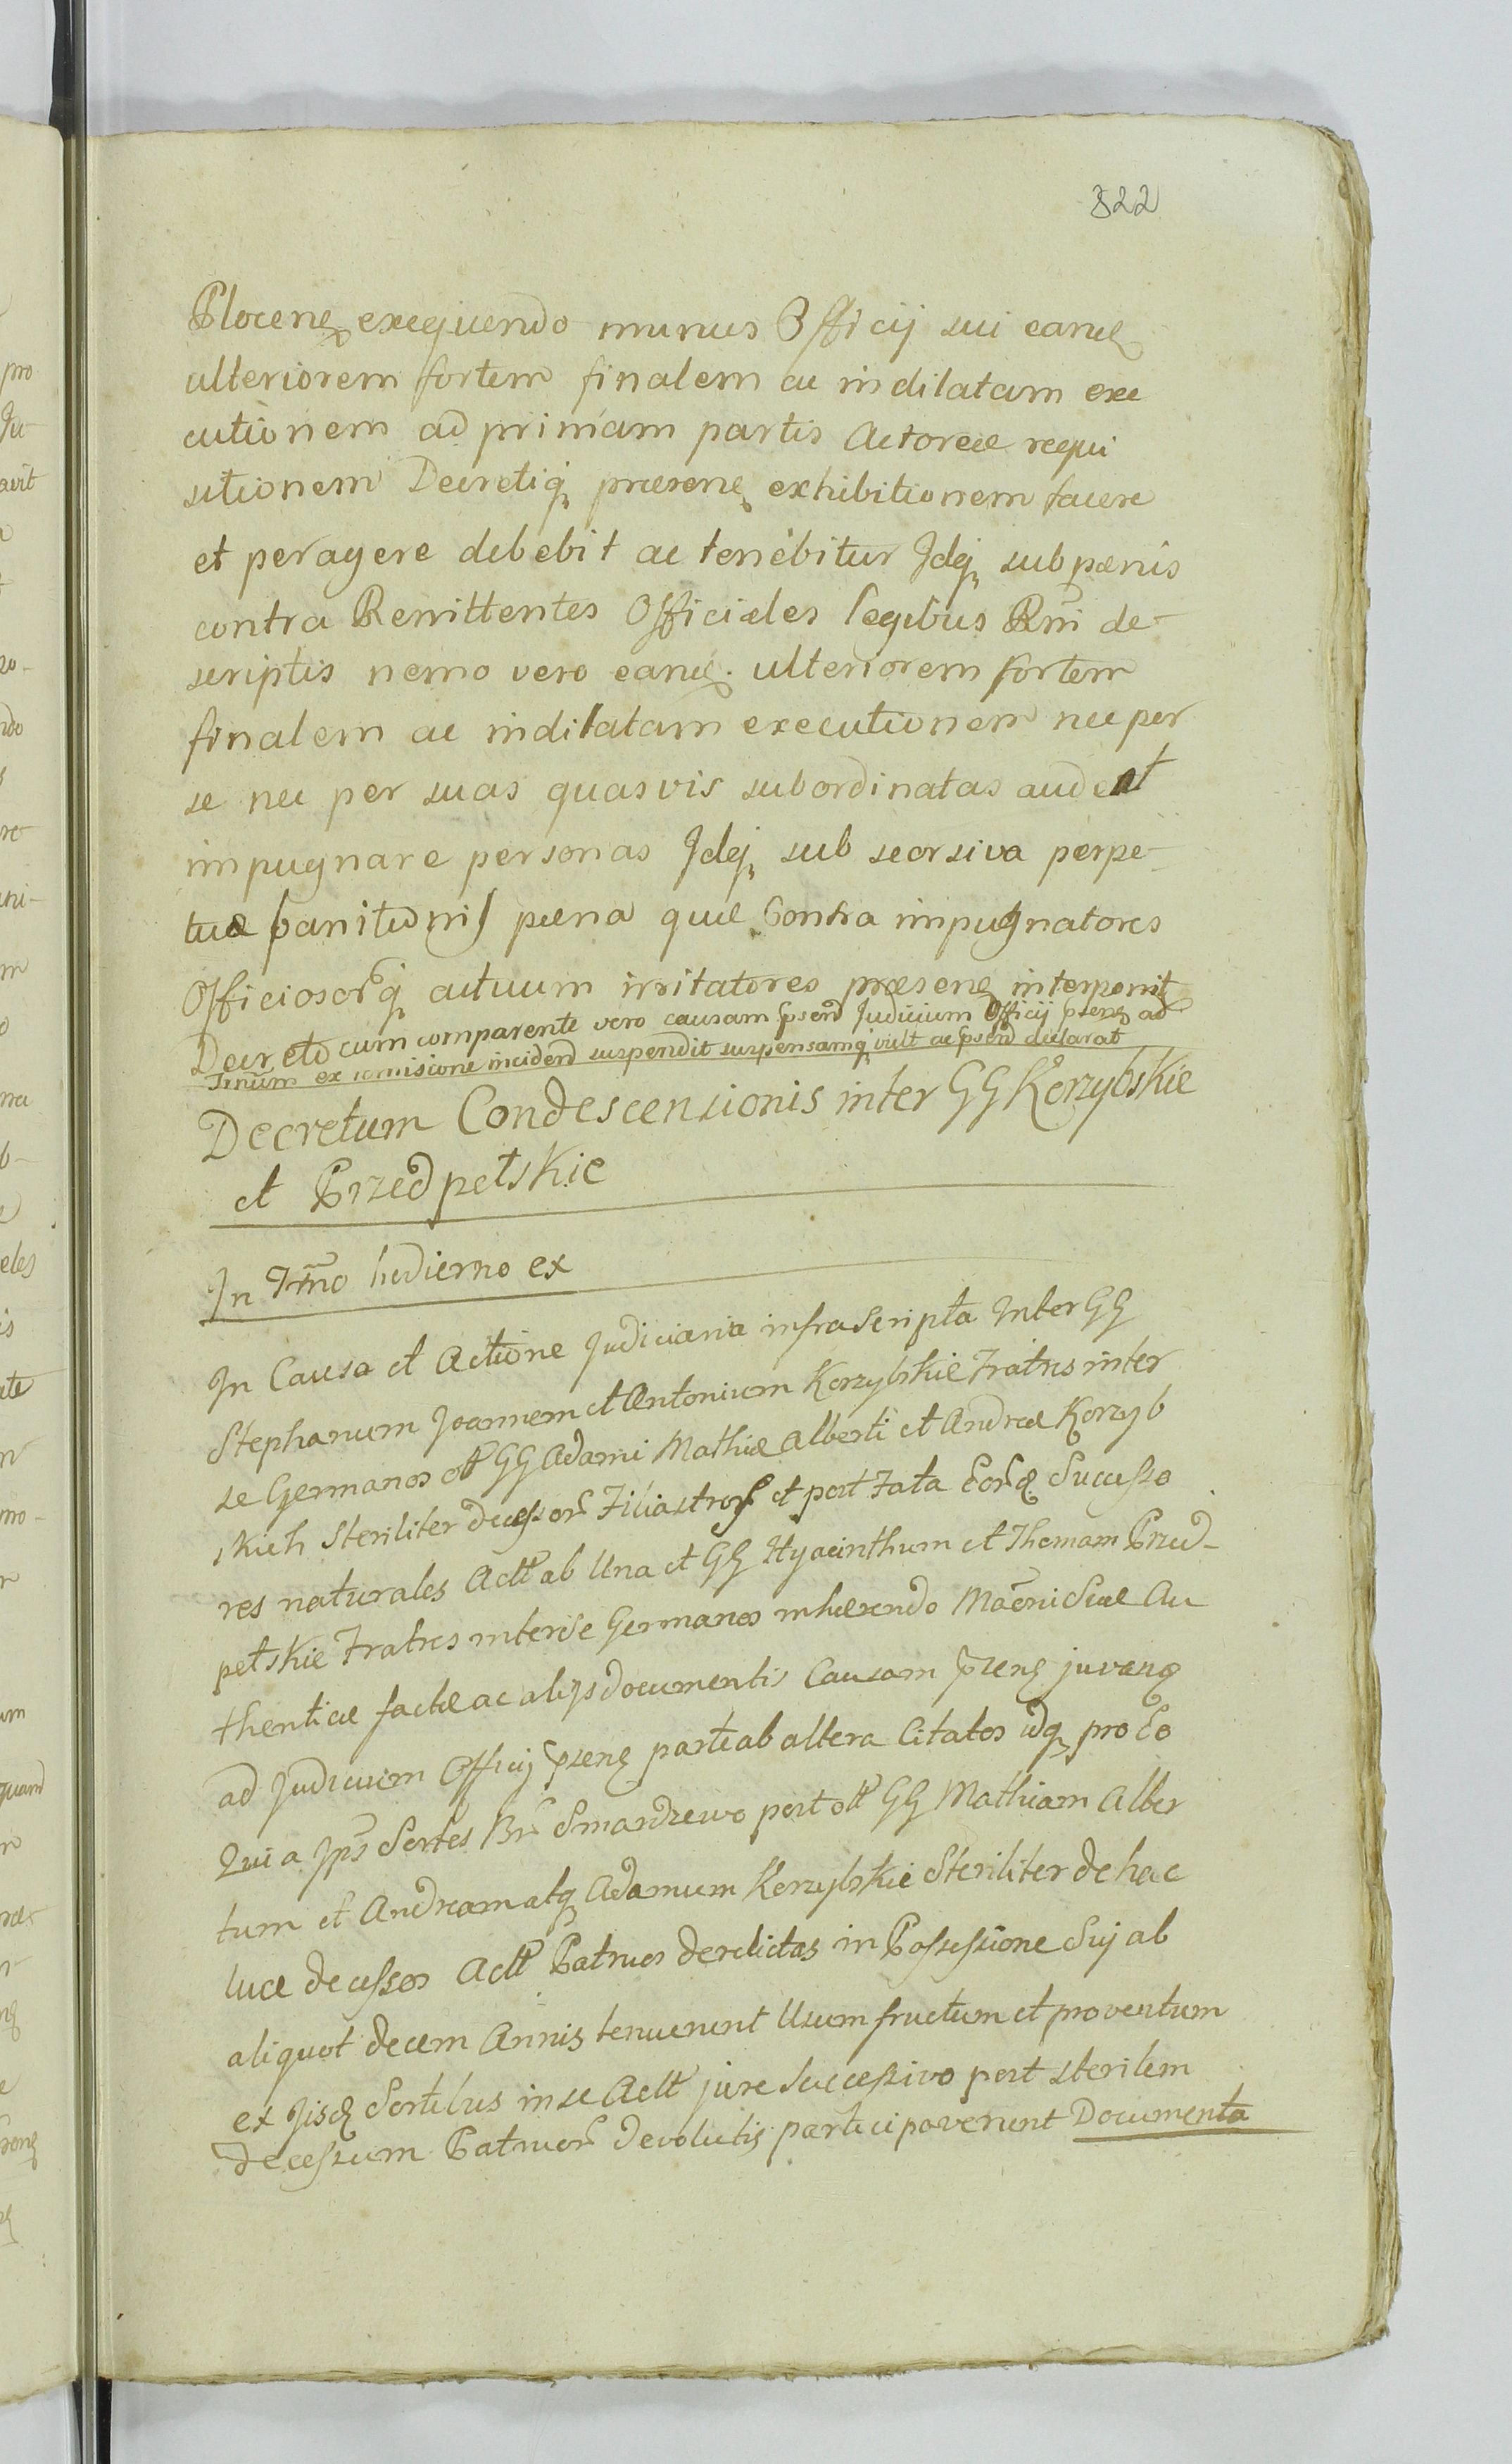 322
Plocenѕ exequendo munus Officij sui eand
ulteriorem fortem finalem ac indilatam exe
cutionem ad primam partis Actoreæ requi
sitionem Decretiq præsens exhibitionem facere
et peragere debebit ac tenebitur Idq sub pænis
contra Remittentes Officiales legibus Rni de-
scriptis nemo vero eand. ulteriorem fortem
finalem ac indilatam executionem nec per
se nec per suas quasvis subordinatas audeat
impugnare personas Idq sub seorsiva perpe-
tuæ banitionis pæna quæ Contra impugnatores
Officiosorq actuum irritatores præsens interponit
Decreto cum comparente vero causam psend Judicium Officij psens ad
Trnum ex remisione inciden suspendit suspensamq vult ac psend declarat
Decretum Condescensionis inter GG Korzybskie
et Przedpełskie
In Trno hodierno ex
In Causa et Actione Judiciaria infrascripta Inter GG
Stephanum Joannem et Antonium Korzybskie Fratres inter
se Germanos olt GG Adami Mathiæ Alberti et Andreæ Korzyb
skich Steriliter decessor Filiastros et post Fata Eorq Successo
res naturales Actt ab Una et GG Hyacinthum et Thomam Przed-
pełskie Fratres inter se Germanos inhærendo Maoni Suæ Au
thenticæ factæ ac alijs documentis Causam psens juvang
ad Judicium Officij psens parte ab altera Citatos idq pro Eo
Quia Ips Sortes Br Smardzewo post olt GG Mathiam Alber
tum et Andream atq Adamum Korzybskie Steriliter de hac
luce decessos Actt Patruos derelictas in Possessione Sui ab
aliquot decem Annis tenuerunt Usumfructum et proventum
ex Iisd Sortibus in se Actt jure Successivo post sterilem
decessum Patruor devolutis participaverunt Documenta